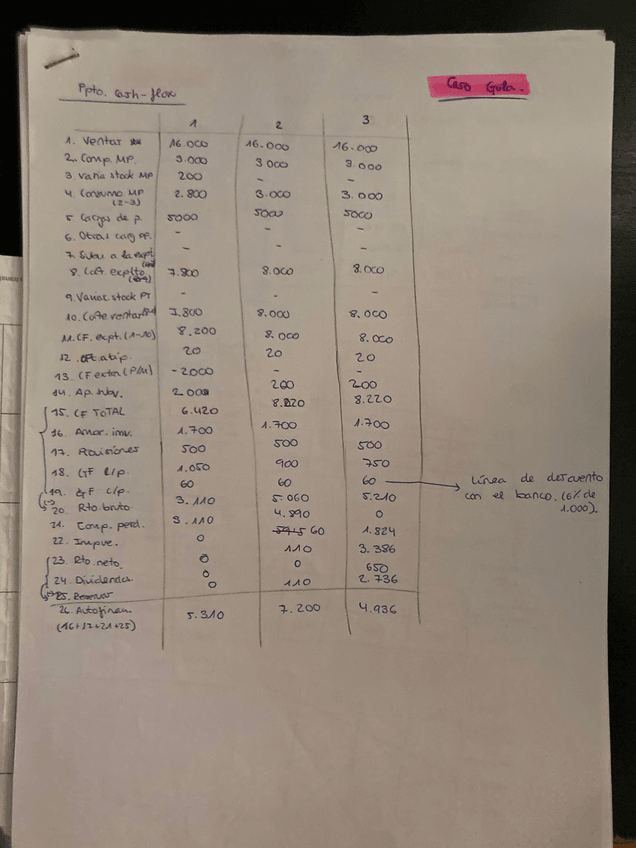 Ppto. Cash-flow
Caso Guía.
1 2 3
1. Ventas 16.000 16.000 16.000
2. Comp. MP. 3.000 3 000 3 000
3. Varia stock MP 200 - -
4. Consumo MP 2.800 3.000 3.000
(2-3)
5. Cargas de p. 5000 5000 5000
6. Otras carg - - -
7. Subv a la expt - - -
8. Cote 7.800 8.000 8.000
9. Variac. stock PT - - -
10. Cote ventas 7.800 8.000 8.000
11. CF. expt. (1-10) 8.200 8.000 8.000
12. 20 20 20
13. CF extra (P/M) -2000 - -
14. Ap. subv. 200 200 200
15. CF TOTAL 6.420 8.220 8.220
16. Amor. inv. 1.700 1.700 1.700
17. Provisiones 500 500 500
18. GF L/p. 1.050 900 750
19. GF c/p. 60 60 60 → línea de descuento
con el banco. (6% de
1.000).
20. Rto. bruto 3.110 5.060 5.210
21. Comp. perd. 3.110 4.890 0
22. Impue. 0 60 1.824
23. Rto. neto. 0 110 3.386
24. Dividendos 0 0 650
25. Reservas 0 110 2.736
26. Autofinan 5.310 7.200 4.936
(16+17+21+25)